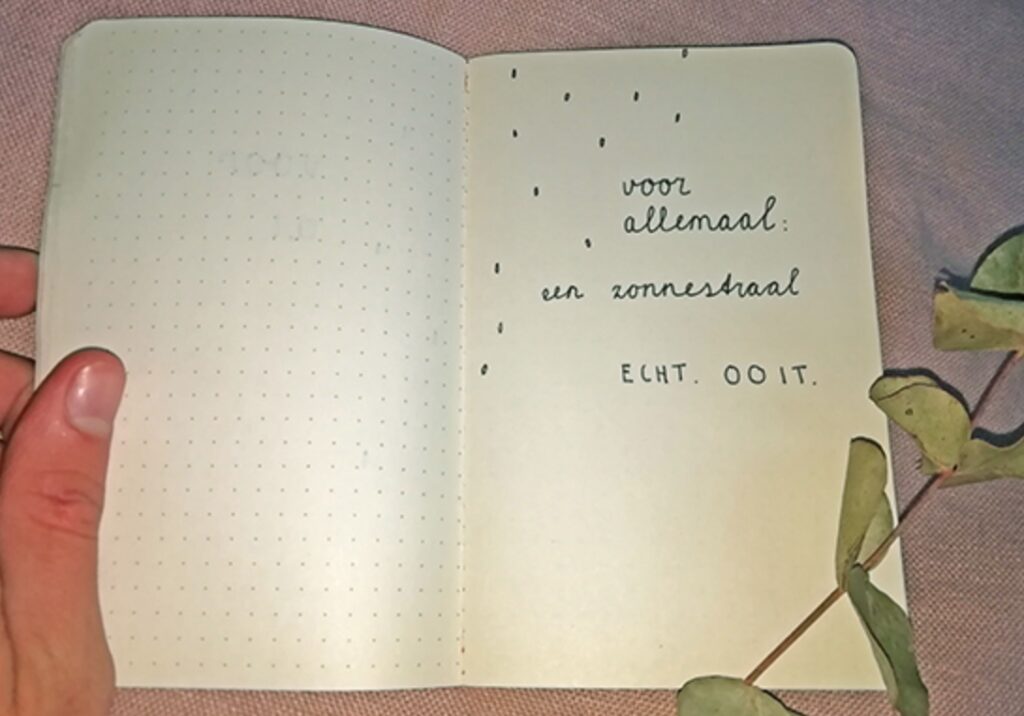 voor
allemaal:
een zonnestraal
ECHT. OOIT.